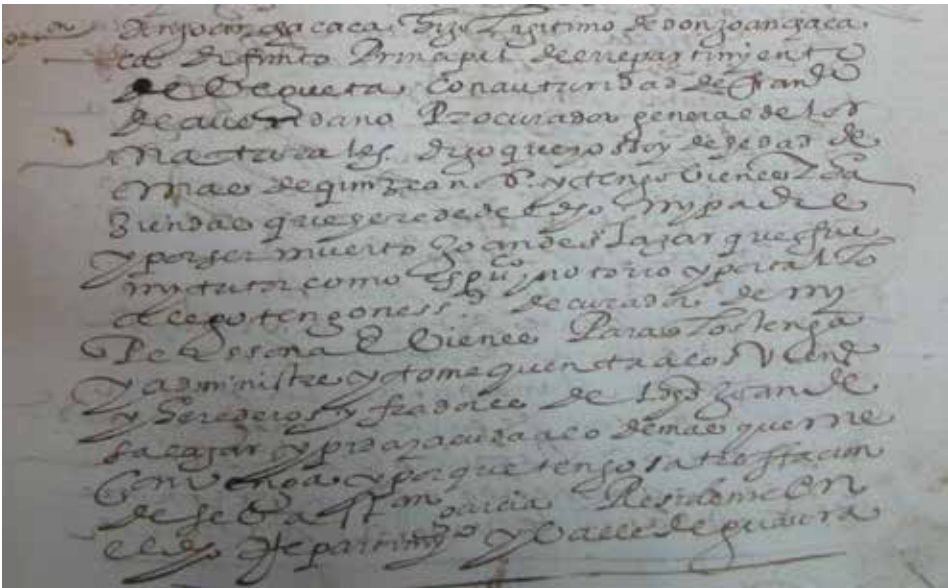 hijo legitimo de don Joan
difunto Principal del repartimiento
de Vegueta con auturidad de Franco
de avendano Procurador general de los
naturales digo que yo soy de hedad de
mas de quinze años y tengo bienes y ha
ziendas que herede del dho my padre
y por ser muerto Joan de Salazar que fue
my tutor como es puco notorio y por tal lo
alego tengo nessd de curador de my
Perssona E bienes Para q los tenga
y administre y tome quenta a los
y herederos y fiadores de dho Juan de
salazar y pida y acuda a lo demas que me
convenga y porque tengo satisffacion
de Sebastian garcia Residente En
el dho Repartimyo y Valle de guaura